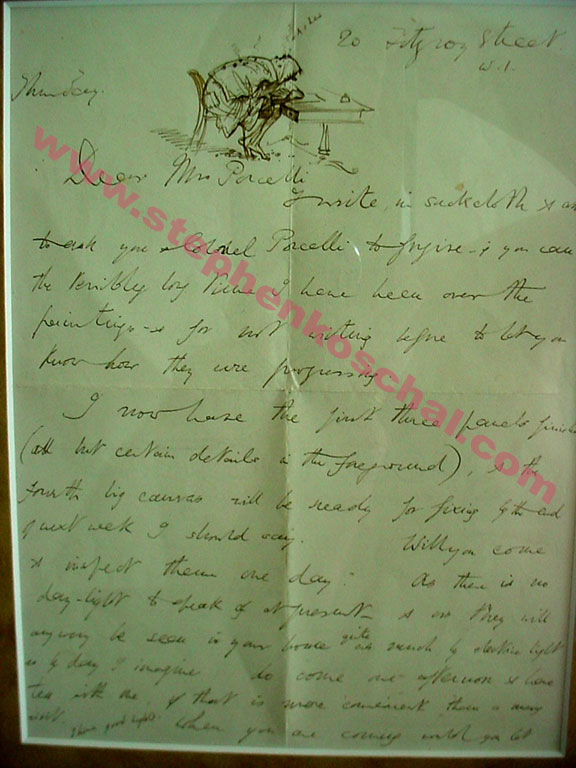 20 Fitzroy Street
W.1.
Thursday.
Dear Mrs Porcelli
I write, in sackcloth & as
to ask you & Colonel Porcelli to forgive – if you can
the terribly long time I have been over the
paintings – & for not writing before to let you
know how they were progressing
I now have the first three panels finish
(all but certain details in the foreground), & the
fourth big canvas will be ready for fixing by the end
of next week I should say. Will you come
& inspect them one day? As there is no
day-light to speak of at present – & as they will
anyway be seen in your house quite as much by electric light
as by day I imagine do come one afternoon & have
tea with me, if that is more convenient than a morning
visit. when you are coming let
www.stephenkoschal.com